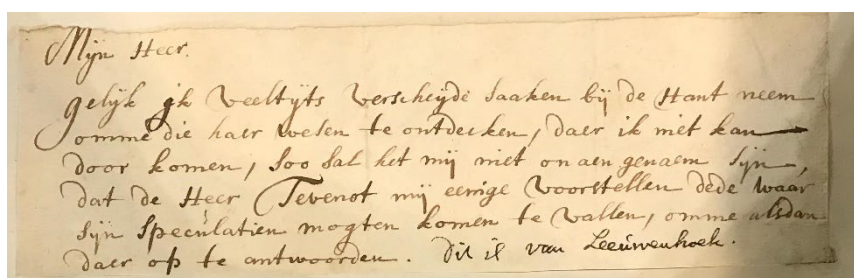 Mijn Heer.
gelijk ik veeltijts verscheijde saaken bij de Hant neem
omme die haer wesen te ontdecken, daer ik niet kan
door komen, soo sal het mij niet onaengenaem sijn,
dat de Heer Tevenot mij eenige voorstellen dede waar
sijn speculatien mogten komen te vallen, omme alsdan
daer op te antwoorden. Dit is van Leeuwenhoek.